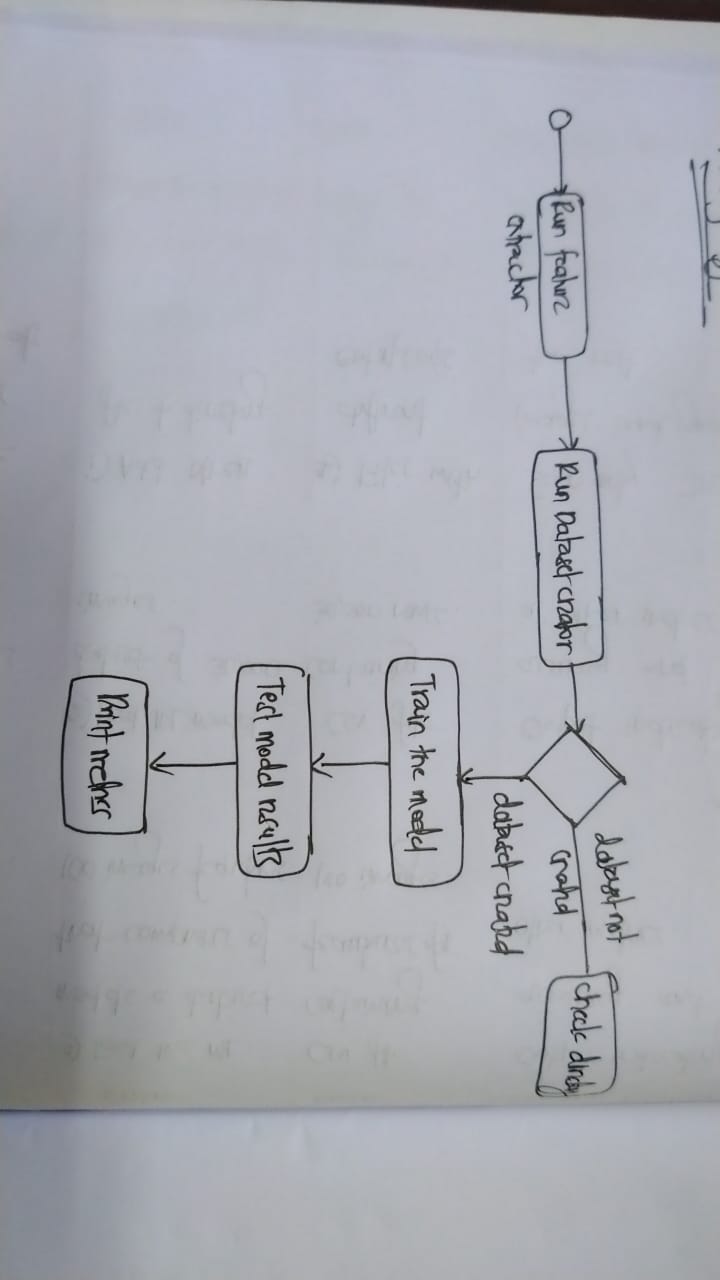 Run feature
extractor
Run Dataset creator
dataset not
created
check
dataset created
Train the model
Test model results
Print metrics